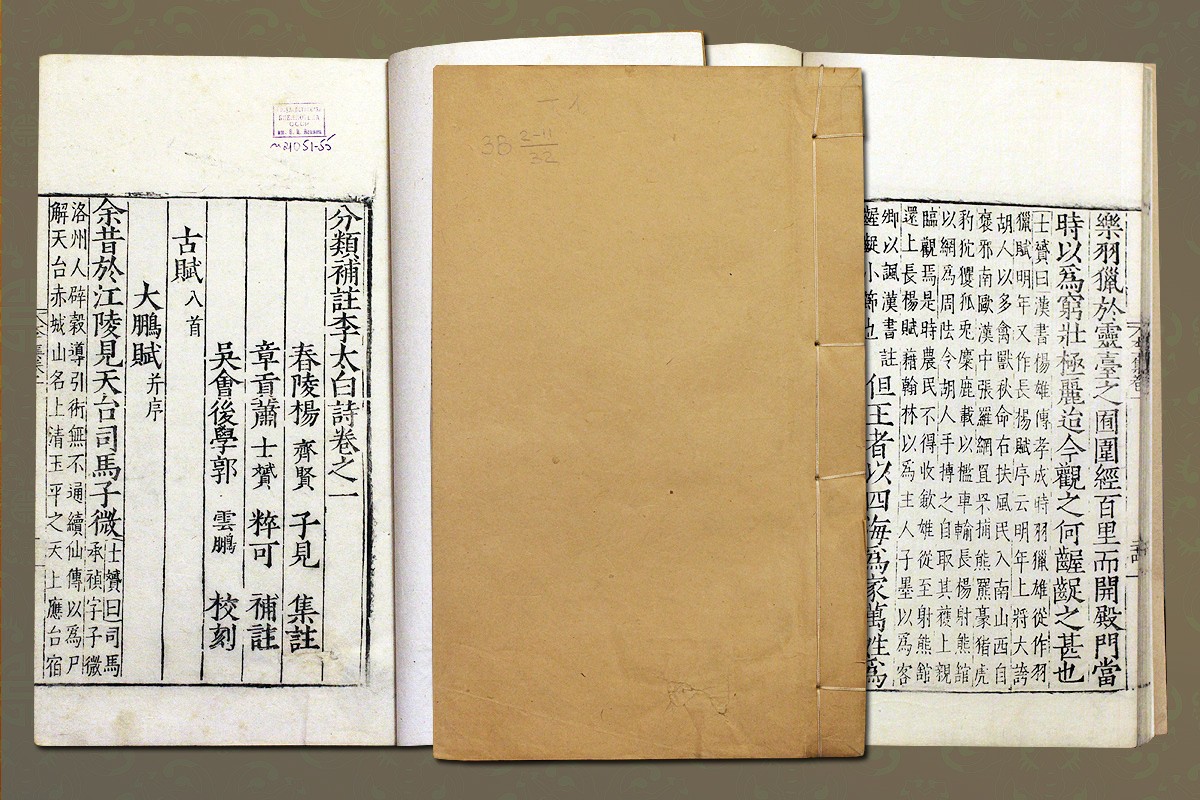 分類補註李太白詩卷之一
春陵楊 齊賢 子見 集註
章貢蕭 士贇 粹可 補註
吳會後學郭 雲鵬 校刻
古賦八首
大鵬賦并序
余昔於江陵見天台司馬子微
士贇曰司馬
承禎字子微
洛州人辟穀導引術無不通續仙傳以爲尸
解天台赤城山名上清玉平之天上應台宿
3Б 2-11
32
樂羽獵於靈臺之囿圍經百里而開殿門當
時以爲窮壯極麗迨今觀之何齷齪之甚也
士贇曰漢書楊雄傳孝成時羽獵雄從作羽
獵賦明年又作長楊賦序云明年上將大誇
胡人以多禽獸秋命右扶風民入南山西自
褒邪南歐漢中張羅網罝罘捕熊羆豪猪虎
豹狖玃狐兎麋鹿載以檻車輸長楊射熊館
以網爲周阹令胡人手搏之自取其獲上親
臨觀焉是時農民不得收斂雄從至射熊館
還上長楊賦藉翰林以爲主人子墨以爲客
卿以諷漢書註
齷齪小節也
但王者以四海爲家萬姓爲